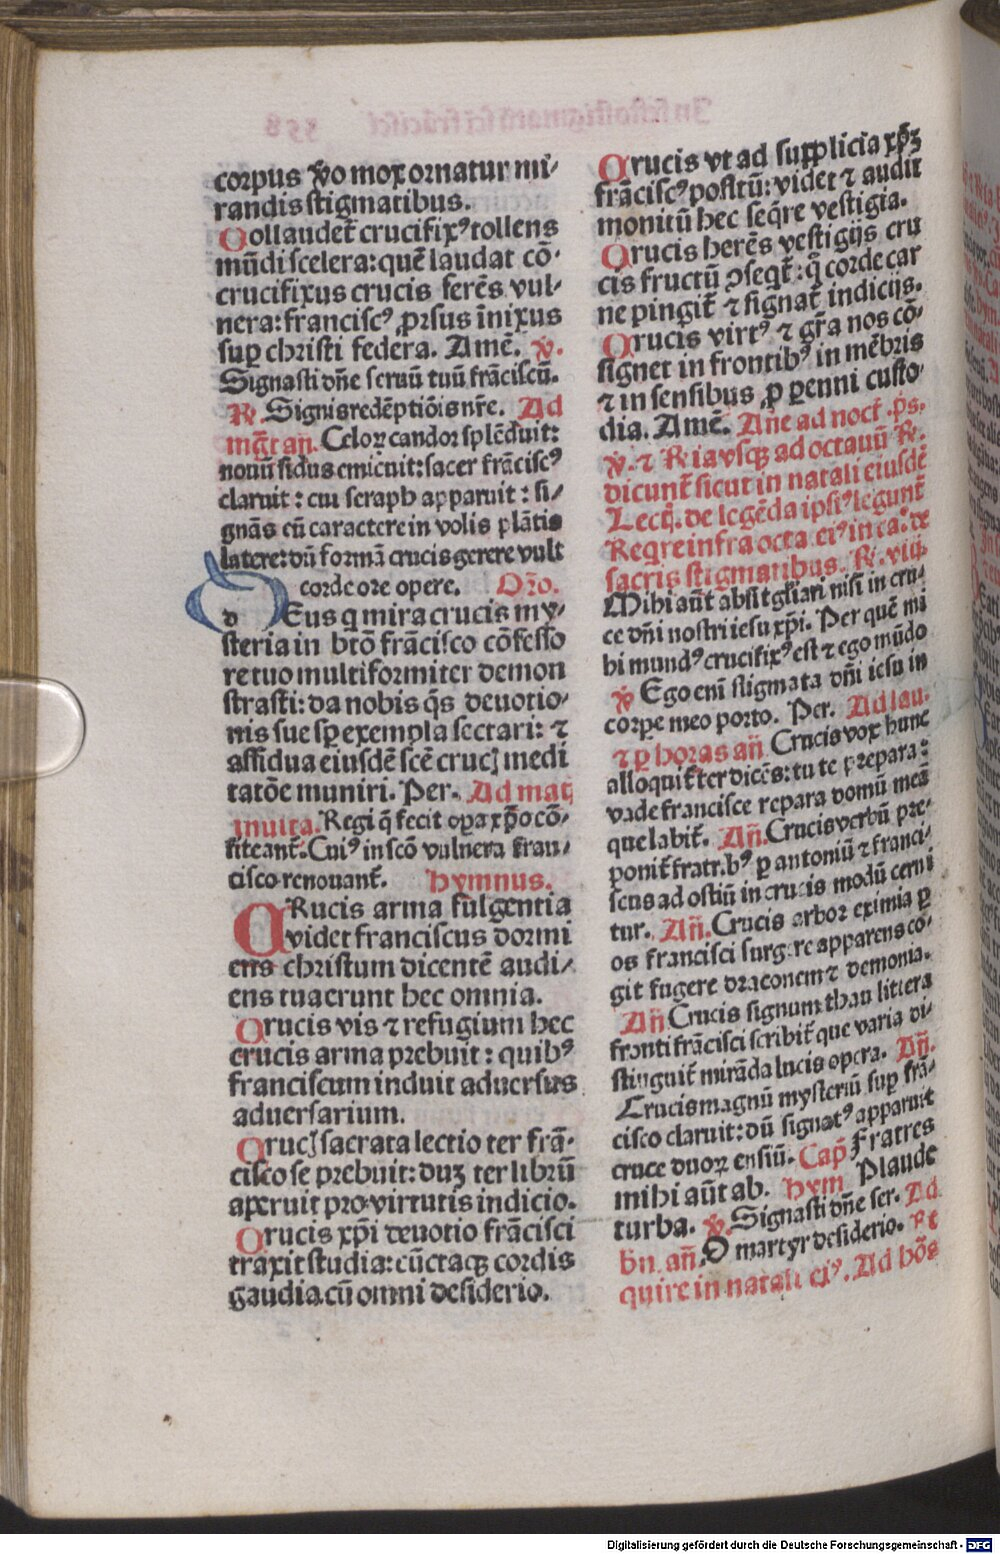 corpus v̄o mox ornatur mi-
randis stigmatibus.
Collaudet̄ crucifixꝰ tollens
mūdi scelera: quē laudat cō-
crucifixus crucis ferēs vul-
nera: franciscꝰ ꝓrsus īnixus
suꝑ christi federa. Amē. ℣.
Signasti dn̄e seruū tuū frāciscū.
℟. Signis redēptiōis nr̄e. Ad
mgt̄ an̄. Celoꝝ candor splēduit:
nouū sidus emicuit: sacer frāciscꝰ
claruit: cui seraph apparuit: si-
gnās eū caractere in volis plātis
latere: dū formā crucis gerere vult
corde ore opere. Oro.
dEus q mira crucis my-
steria in btō frācisco cōfesso
re tuo multiformiter demon
strasti: da nobis q̄s deuotio-
nis sue sꝑ exempla sectari: ⁊
assidua eiusdē scē crucꝭ medi
tatōe muniri. Per. Ad mat
inuita. Regi q̄ fecit oꝑa xp̄o cō-
fiteant̄. Cuiꝰ in scō vulnera fran-
cisco renouant̄. hymnus.
CRucis arma fulgentia
videt franciscus dormi
ens christum dicentē audi-
ens tua erunt hec omnia.
Crucis vis ⁊ refugium hec
crucis arma prebuit: quibꝰ
franciscum induit aduersus
aduersarium.
Crucꝭ sacrata lectio ter frā-
cisco se prebuit: duꝫ ter librū
aperuit pro virtutis indicio.
Crucis xp̄i deuotio frācisci
traxit studia: cūctaqꝫ cordis
gaudia cū omni desiderio.
Crucis vt ad supplicia xp̄ꝫ
frāciscꝰ positū: videt ⁊ audit
monitū hec seq̄re vestigia.
Crucis herēs vestigijs cru
cis fructū ꝯseqt̄: q̄ corde car
ne pingit̄ ⁊ signat̄ indicijs.
Crucis virtꝰ ⁊ gr̄a nos cō-
signet in frontibꝰ in mēbris
⁊ in sensibus ꝓ ꝑenni custo-
dia. Amē. An̄e ad noct̄ .ps.
℣. ⁊ ℟ia vsqꝫ ad octauū ℟.
dicunt̄ sicut in natali eiusdē
Lect̄. de legēda ipsiꝰ legunt̄
Reqre infra octa. eiꝰ in ca.º de
sacris stigmatibus. ℟. viij.
Mihi aūt absit gl̄iari nisi in cru-
ce dn̄i nostri iesu xp̄i. Per quē mi
hi mundꝰ crucifixꝰ est ⁊ ego mūdo
℣ Ego eni stigmata dn̄i iesu in
corpe meo porto. Per. Ad lau.
⁊ ꝑ horas an̄. Crucis vox hunc
alloquit̄ ter dicēs: tu te prepara:
vade francisce repara domū meā
que labit̄. An̄. Crucis verbū pre-
ponit̄ fratr.bꝰ ꝑ antoniū ⁊ franci-
scus ad ostiū in crucis modū cerni
tur. An̄. Crucis arbor eximia ꝑ
os francisci surgere apparens co-
git fugere draconem ⁊ demonia.
An̄ Crucis signum thau littera
fronti frācisci scribit̄ que varia di-
stinguit̄ mirāda lucis opera. An̄.
Crucis magnū mysteriū suꝑ frā-
cisco claruit: dū signatꝰ apparuit
cruce duoꝝ ensiū. Cap̄ Fratres
mihi aūt ab. hym Plaude
turba. ℣. Signasti dn̄e ser. Ad
bn. an̄. O martyr desiderio. Re
quire in natali eiꝰ. Ad hōs
Digitalisierung gefördert durch die Deutsche Forschungsgemeinschaft - DFG